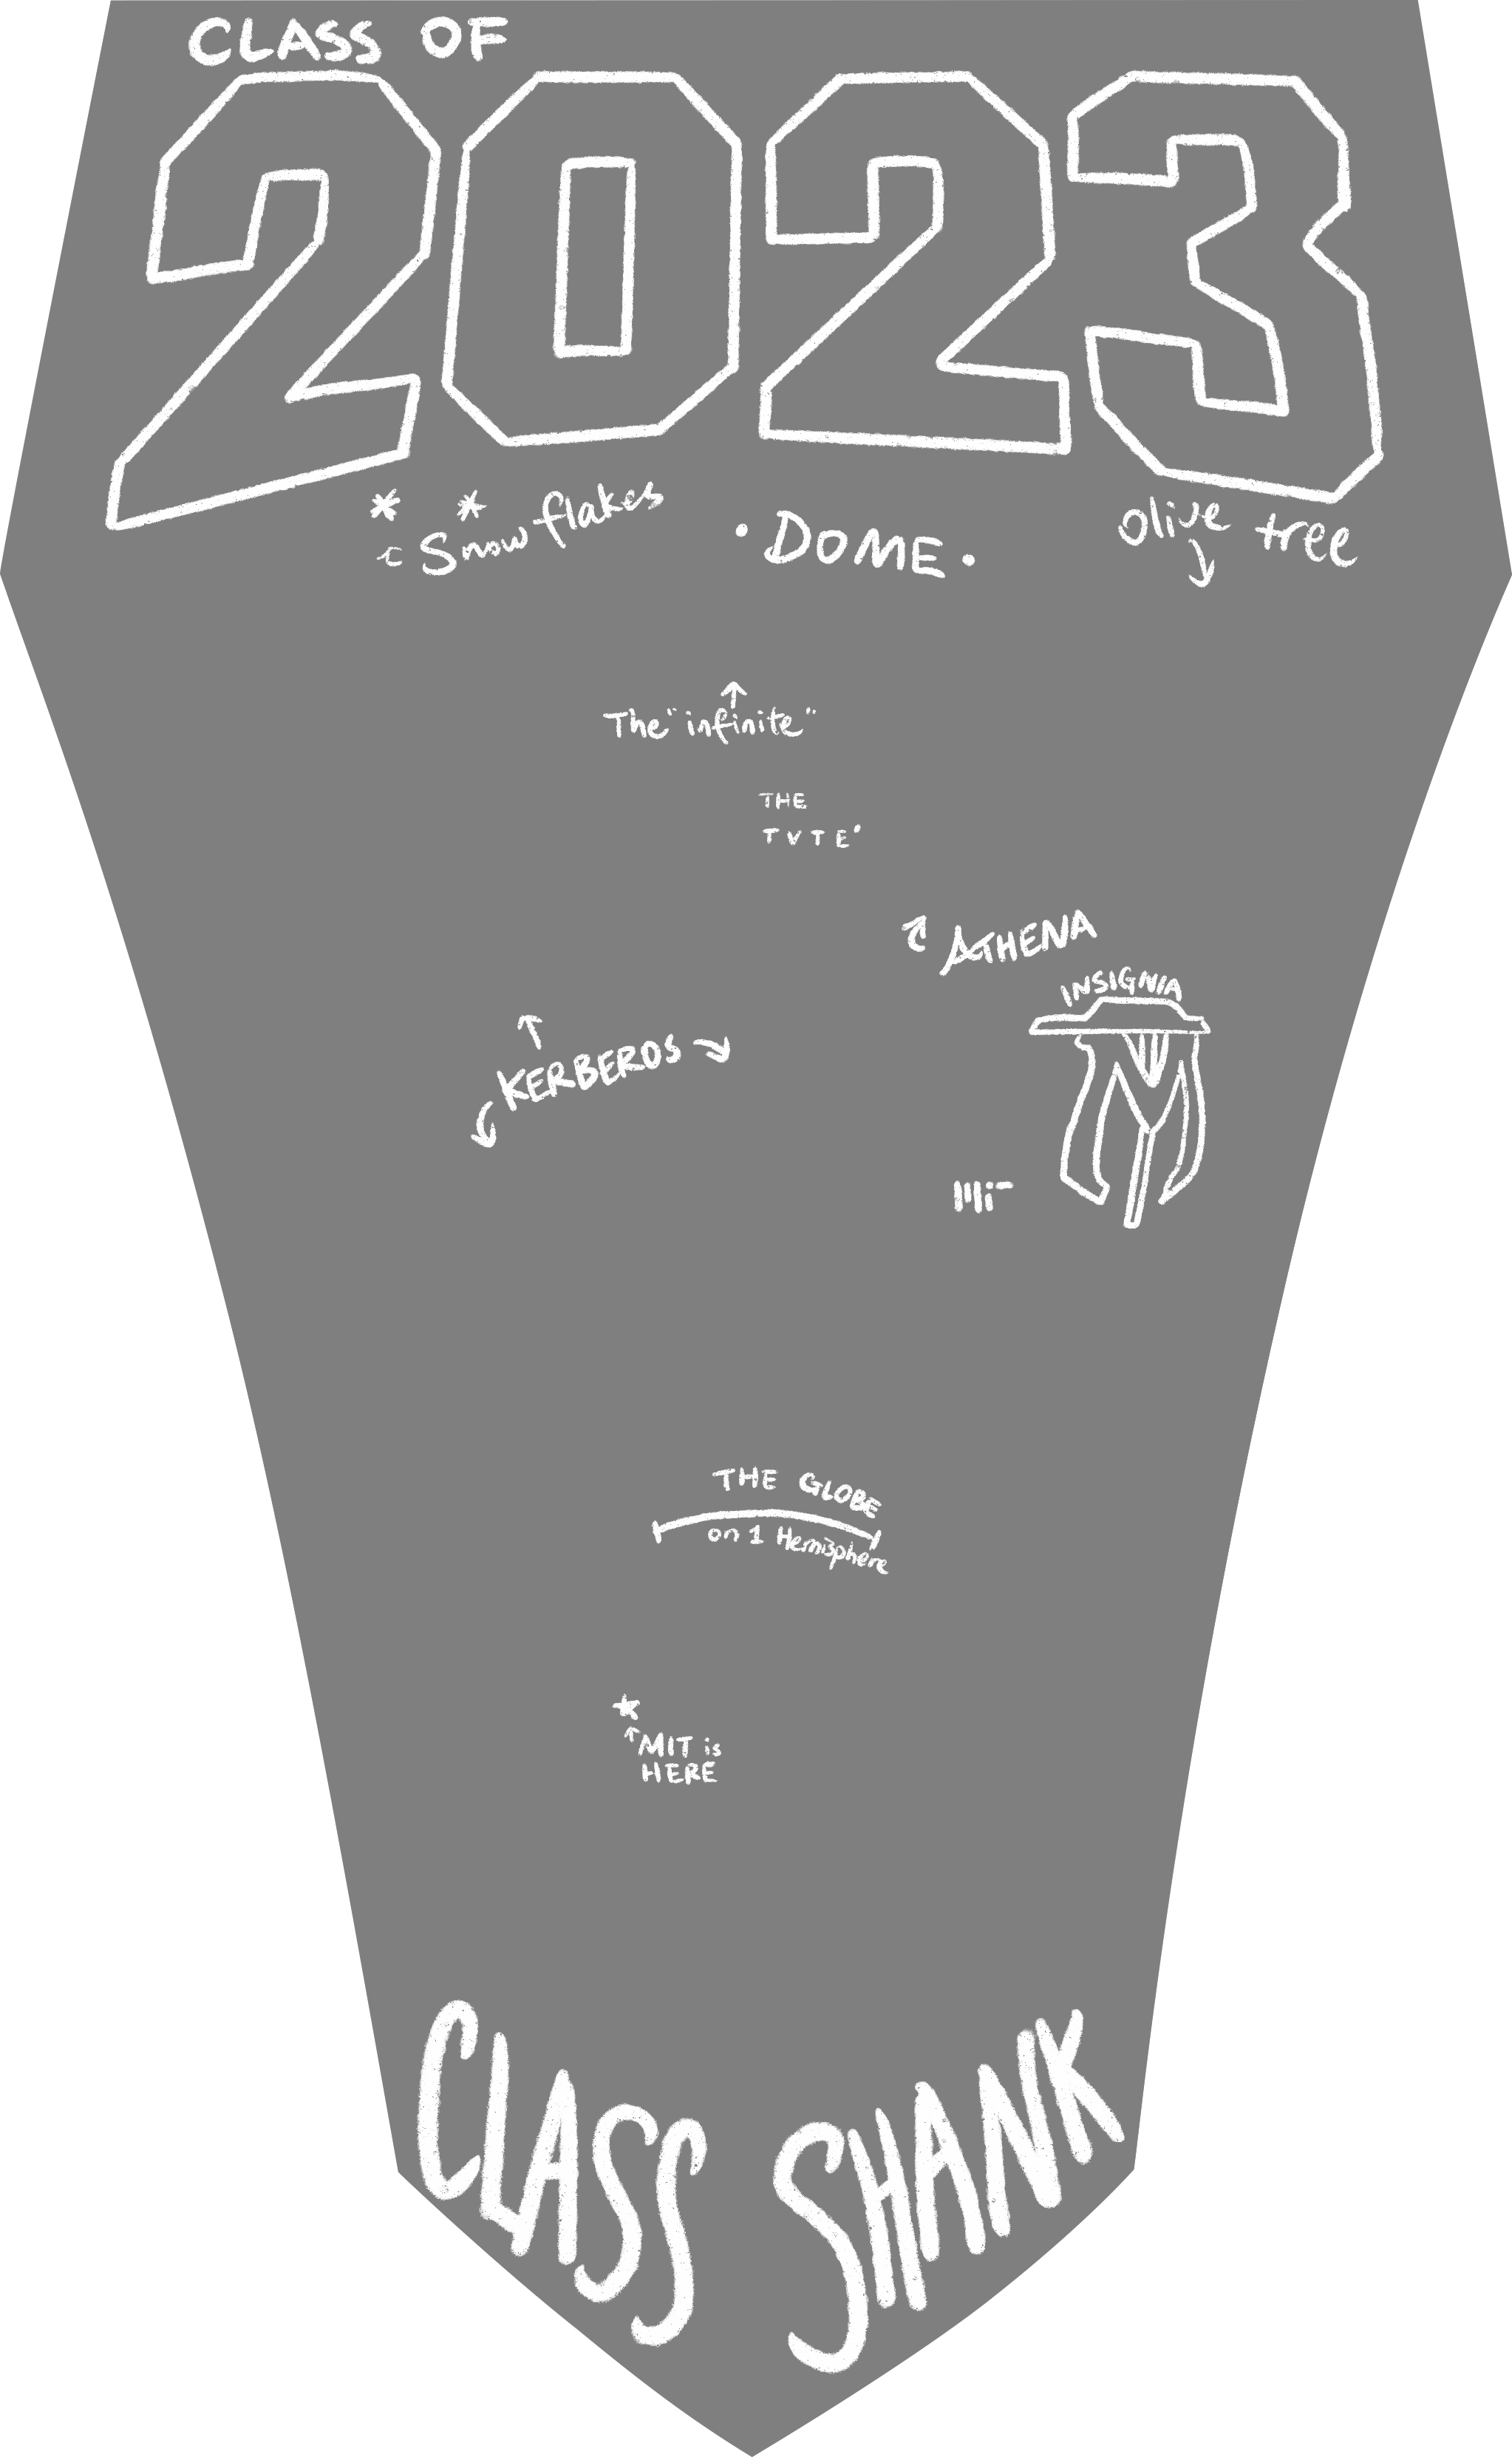 CLASS OF
2023
Snowflakes
• DOME.
olive tree
The "infinite"
THE
TVTE'
ATHENA
INSIGNIA
KERBEROS
MIT
THE GLOBE
on 1 Hemisphere
MIT is
HERE
CLASS SHANK